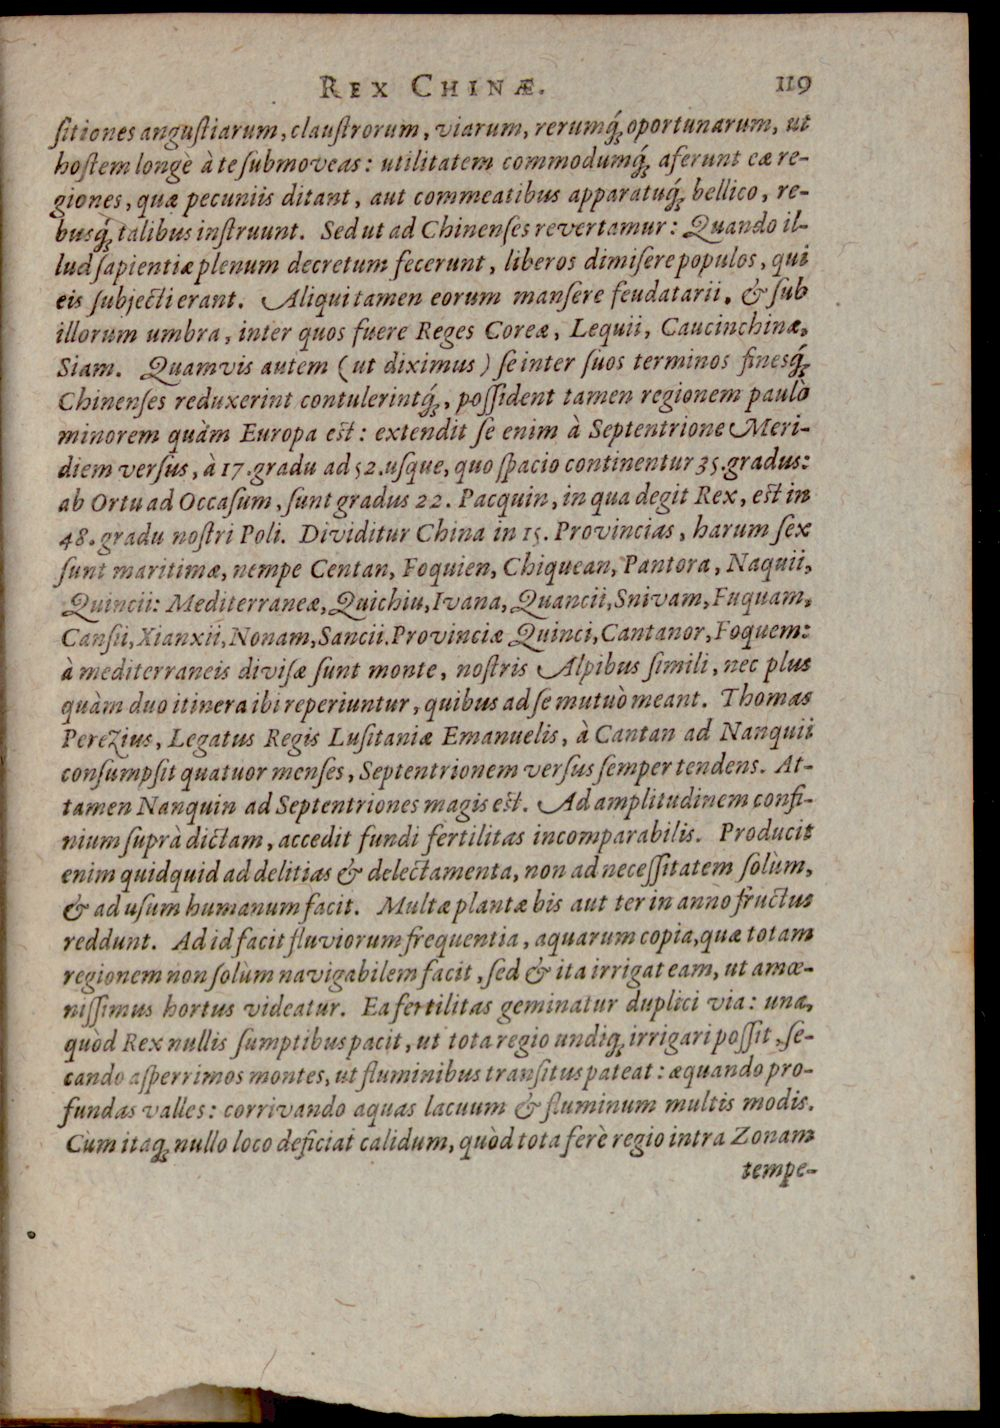 REX CHINÆ. 119
ſitiones anguſtiarum, clauſtrorum, viarum, rerumq́; oportunarum, ut
hoſtem longè à te ſubmoveas: utilitatem commodumq́; aferunt eæ re-
giones, quæ pecuniis ditant, aut commeatibus apparatuq́; bellico, re-
busq́; talibus inſtruunt. Sed ut ad Chinenſes revertamur: Quando il-
lud ſapientiæ plenum decretum fecerunt, liberos dimiſere populos, qui
eis ſubjecti erant. Aliqui tamen eorum manſere feudatarii, & ſub
illorum umbra, inter quos fuere Reges Coreæ, Lequii, Caucinchinæ,
Siam. Quamvis autem (ut diximus) ſe inter ſuos terminos fineſq́;
Chinenſes reduxerint contulerintq́;, poſſident tamen regionem paulò
minorem quàm Europa eſt: extendit ſe enim à Septentrione Meri-
diem verſus, à 17. gradu ad 52. uſque, quo ſpacio continentur 35. gradus:
ab Ortu ad Occaſum, ſunt gradus 22. Pacquin, in qua degit Rex, eſt in
48. gradu noſtri Poli. Dividitur China in 15. Provincias, harum ſex
ſunt maritimæ, nempe Centan, Foquien, Chiquean, Pantora, Naquii,
Quincii: Mediterraneæ, Quichiu, Ivana, Quancii, Snivam, Fuquam,
Canſii, Xianxii, Nonam, Sancii. Provinciæ Quinci, Cantanor, Foquem:
à mediterraneis diviſæ ſunt monte, noſtris Alpibus ſimili, nec plus
quàm duo itinera ibi reperiuntur, quibus ad ſe mutuò meant. Thomas
Perezius, Legatus Regis Luſitaniæ Emanuelis, à Cantan ad Nanquii
conſumpſit quatuor menſes, Septentrionem verſus ſemper tendens. At-
tamen Nanquin ad Septentriones magis eſt. Ad amplitudinem confi-
nium ſuprà dictam, accedit fundi fertilitas incomparabilis. Producit
enim quidquid ad delitias & delectamenta, non ad neceſſitatem ſolùm,
& ad uſum humanum facit. Multæ plantæ bis aut ter in anno fructus
reddunt. Ad id facit fluviorum frequentia, aquarum copia, quæ totam
regionem non ſolùm navigabilem facit, ſed & ita irrigat eam, ut amœ-
niſſimus hortus videatur. Ea fertilitas geminatur duplici via: una,
quòd Rex nullis ſumptibus pacit, ut tota regio undiq; irrigari poſſit, ſe-
cando aſperrimos montes, ut fluminibus tranſitus pateat: æquando pro-
fundas valles: corrivando aquas lacuum & fluminum multis modis.
Cùm itaq; nullo loco deficiat calidum, quòd tota ferè regio intra Zonam
tempe-